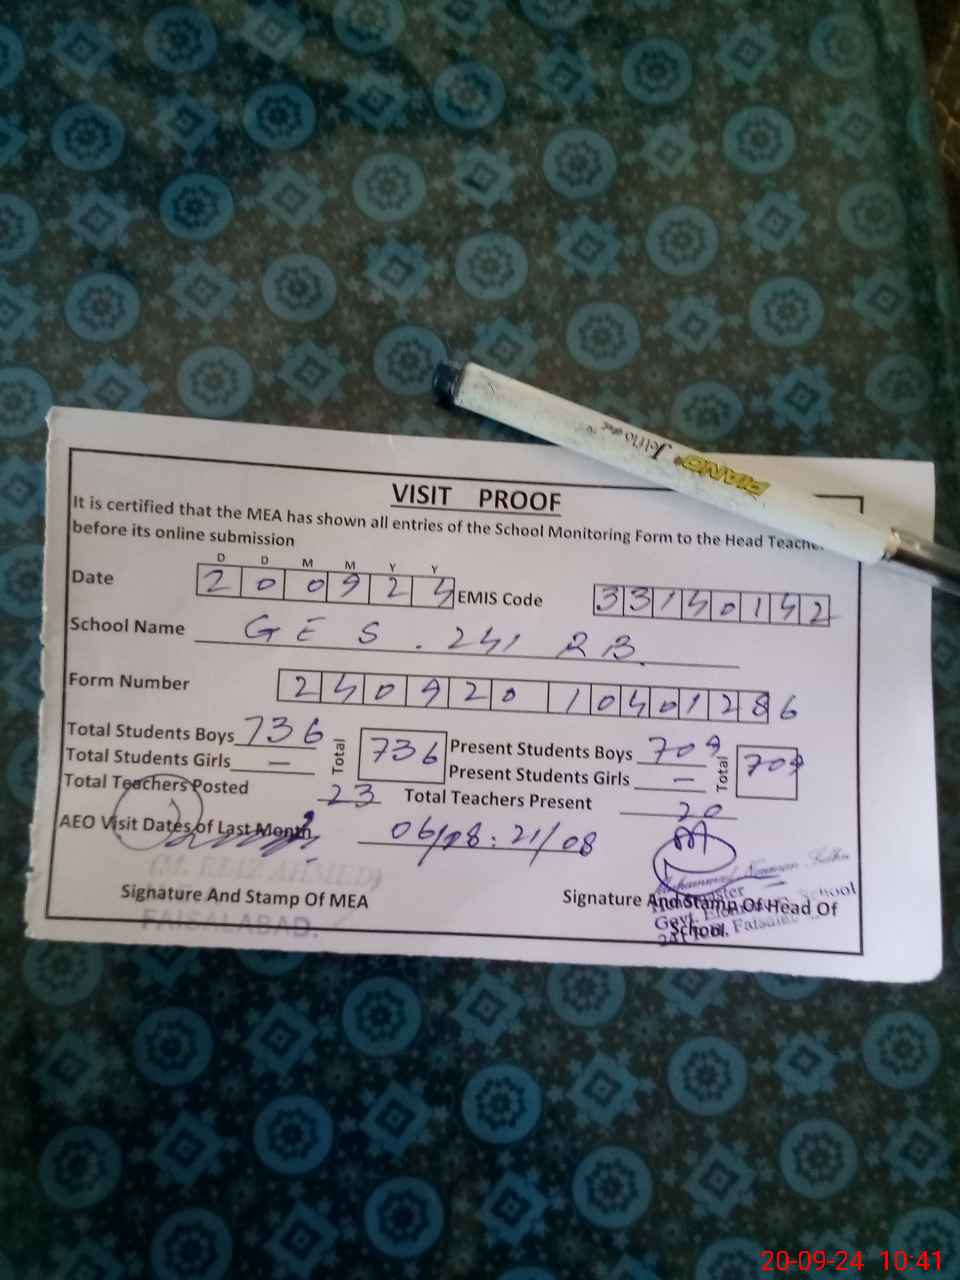 PIANO
Jetflo
VISIT PROOF
It is certified that the MEA has shown all entries of the School Monitoring Form to the Head Teache
before its online submission
D D M M Y Y
Date 2 0 0 9 2 4 EMIS Code 3 3 1 4 0 1 4 2
School Name G E S . 241 RB
Form Number 2 4 0 9 2 0 1 0 4 0 1 2 8 6
Total Students Boys 736 Total 736 Present Students Boys 709 Total 709
Total Students Girls — Present Students Girls —
Total Teachers Posted 23 Total Teachers Present 20
AEO Visit Dates of Last Month 06/08 : 21/08
AHMED)
Signature And Stamp Of MEA
FAISALABAD.
Muhammad Nouman
Signature And Stamp Of Head Of
School.
Govt. School
20-09-24 10:41